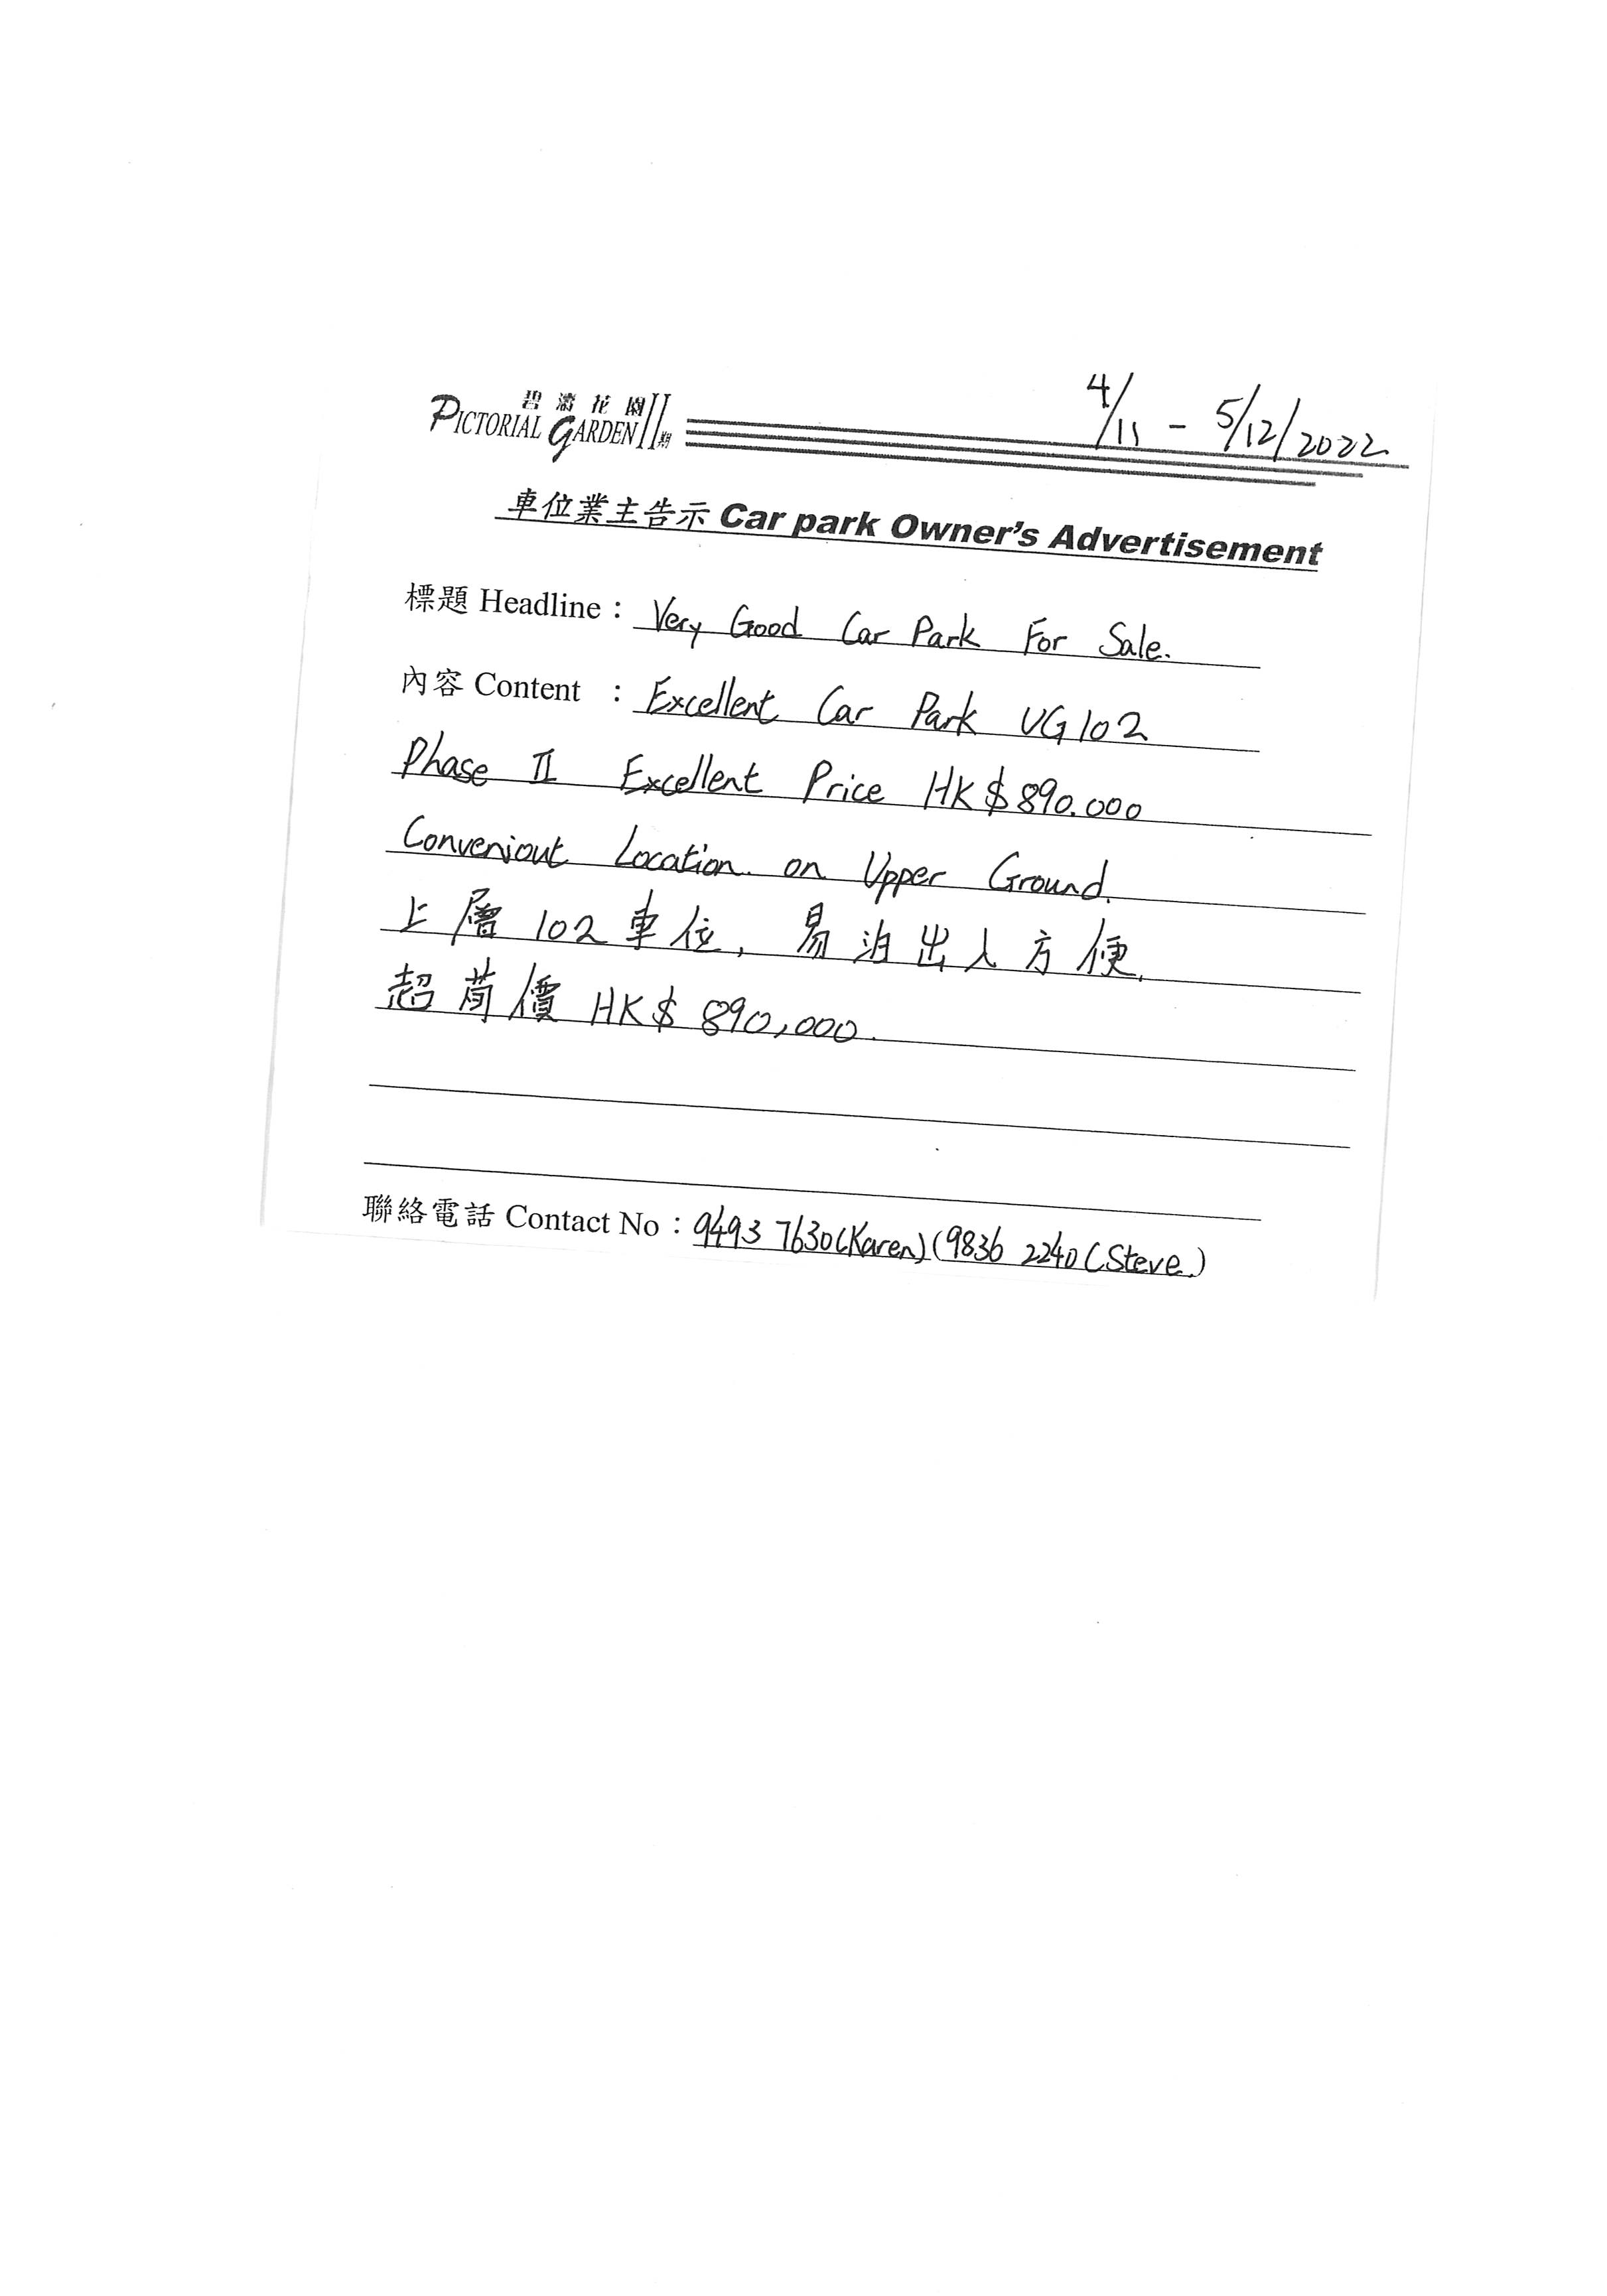 碧濤花園
PICTORIAL GARDEN II期
4/11 - 5/12/2022
車位業主告示 Car park Owner's Advertisement
標題 Headline : Very Good Car Park For Sale.
內容 Content : Excellent Car Park UG102
Phase II Excellent Price HK$890.000
Conveniout Location on Upper Ground.
上層102車位, 易泊出入方便.
超荀價 HK$ 890,000.
聯絡電話 Contact No : 9493 7630(Karen)(9836 2240(Steve.)